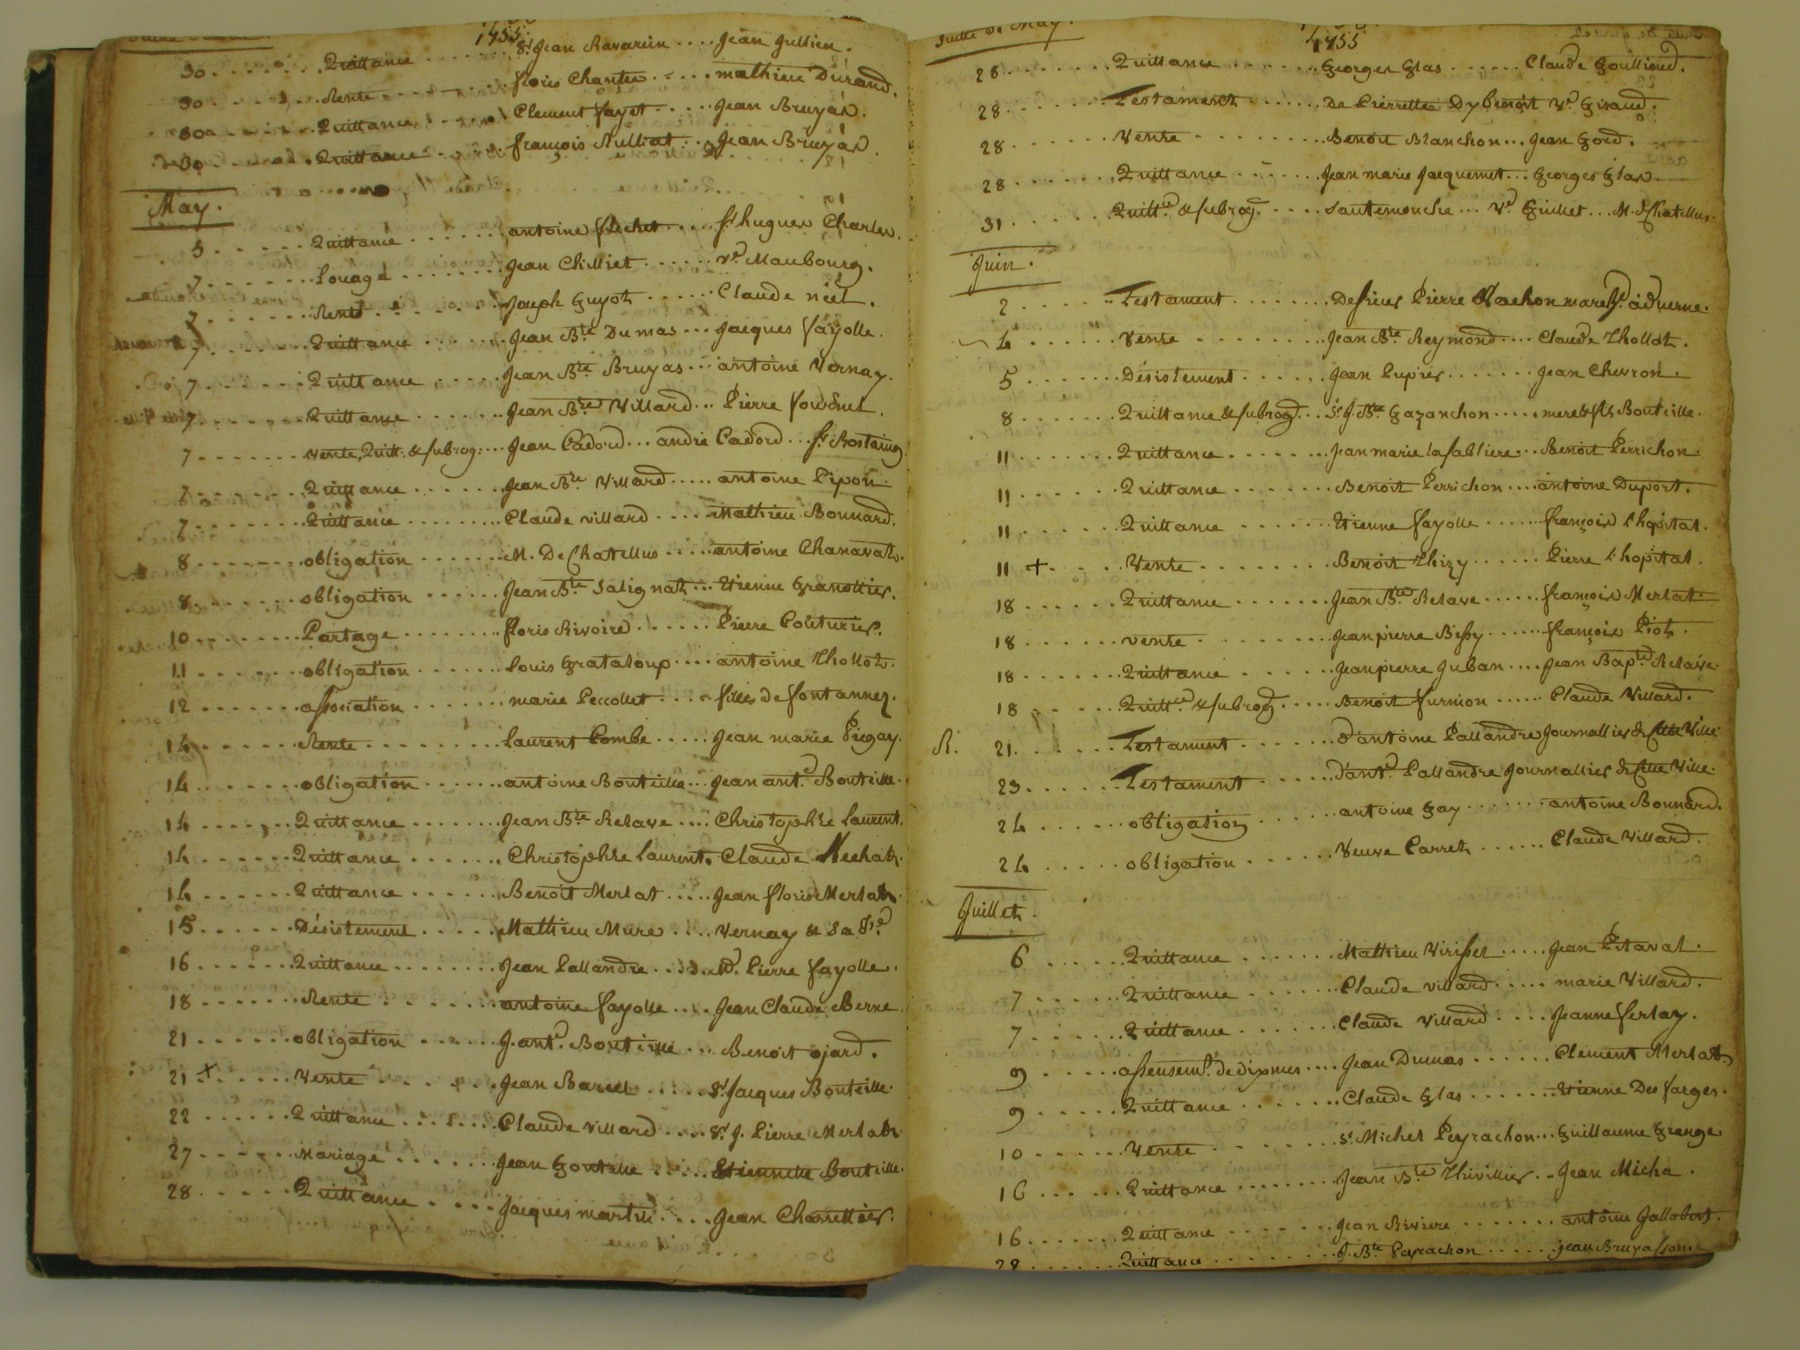 1755.
30 Quittance St Jean Ravarin Jean Jullien.
30 Rente floris Chantre mathieu Durand.
30 Quittance Clement fayet Jean Bruyas.
30 Quittance françois Jean Bruyas.
May.
5 Quittance antoine St hugues Charles.
7 Louage Jean Chilliet Ve Maubourg.
7 Rente Joseph Guyot Claude néel.
7 Quittance Jean Bte Dumas Jacques fayolle.
7 Quittance Jean Bte Bruyas antoine Vernay.
7 Quittance Jean Bte Villard Pierre
7 Vente, Quitt. & subrog. Jean Cadord andré Cadord Sr Rostaing
7 Quittance Jean Bte Villard antoine Pipon.
7 Quittance Claude villard Mathieu Bonnard.
8 obligation M. De Chatellus antoine Chanavat.
8 obligation Jean Bte Salignat Etienne Granottier.
10 Partage floris Rivoire Pierre Couturier.
11 obligation Louis Grataloup antoine Thollot.
12 association marie Peccollet filles de fontannez.
14 Rente Laurent Combe Jean marie Pugay.
14 obligation antoine Bouteille Jean ant.e Bouteille.
14 Quittance Jean Bte Relave Christophle Laurent.
14 Quittance Christophle Laurent. Claude
14 Quittance Benoit Merlat Jean floris Merlat.
15 Désistement Mathieu Mure Vernay & sa
16 Quittance Jean Pallandre Pierre fayolle.
18 Rente antoine fayolle Jean Claude Berne.
21 obligation J. ant.e Bouteille Benoit ojard.
21 + Vente Jean Barcel Sr Jacques Bouteille.
22 Quittance Claude villard Sr J. Pierre Merlat
27 Mariage Jean Gontelle Etiennette Bouteille.
28 Quittance Jacques martin Jean Charrettier.
Suitte de May.
1755
28 Quittance Georges Glas Claude Goullioud.
28 Testament De Pierrette Dybenoit Ve Giraud.
28 Vente Benoit Blanchon Jean Gord.
28 Quittance Jean marie Jacquemet Georges Glas
31 Quitt.ce & subrog. Santemouche Ve Guillet M. de Chatellus.
Juin.
2 Testament De sieur Pierre
4 Vente Jean Bte Reymond Claude Thollot.
5 Désistement Jean Pupier Jean Chevron.
8 Quittance & subrog. Sr J. Bte Gazanchon mere & fils Bouteille.
11 Quittance Jean marie la sabliere Benoit Perrichon.
11 Quittance Benoit Perrichon antoine Duport.
11 Quittance Etienne fayolle françois L'hopital.
11 + Vente Benoit Thizy Pierre L'hopital.
18 Quittance Jean Bte Relave françois Merlat
18 vente Jean pierre Bissy françois Piot.
18 Quittance Jean pierre Juban Jean Bap.te Relave
18 Quitt.ce & subrog. Benoit furnion Claude Villard.
R. 21. Testament D'antoine Pallandre Journallier de cette Ville.
23 Testament D'ant.e Pallandre Journallier de cette Ville.
24 obligation antoine Gay antoine Bonnard.
24 obligation Veuve Carret Claude Villard.
Juillet.
6 Quittance Mathieu Virissel Jean Pitaval.
7 Quittance Claude villard marie Villard.
7 Quittance Claude Villard Jeanne ferlay.
9 assensemt. de dixmes Jean Dumas Clement Merlat
9 Quittance Claude Glas Etienne Desfarges.
10 Vente Sr Michel Peyrachon Guillaume Grange
16 Quittance Jean Bte Thivillier Jean Micha.
16 Quittance Jean Riviere antoine Jallabert.
28 Quittance J. Bte Peyrachon Jean Bruyasson.